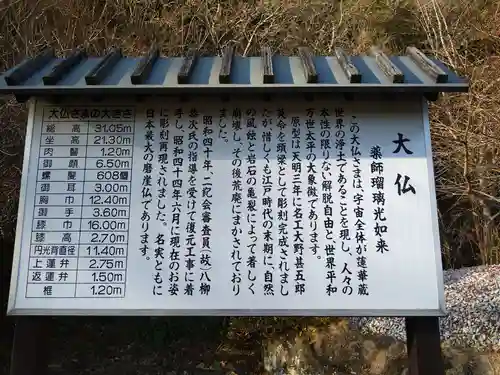 大仏
薬師瑠璃光如来
この大仏さまは、宇宙全体が蓮華蔵
世界の浄土であることを現し、人々の
本性の限りない解脱自由と、世界平和
万世太平の大象徴であります。
原型は天明三年に名工大野甚五郎
英令を頭梁として彫刻完成されまし
たが惜しくも江戸時代の末期に、自然
の風蝕と岩石の亀裂によって著しく
崩壊し、その後荒廃にまかされており
ました。
昭和四十年、二代会審査員(故)八柳
恭次氏の指導を受けて復元工事に着
手し、昭和四十四年六月に現在のお姿
に彫刻再現されました。名実ともに
日本最大の磨崖仏であります。
大仏さまの大きさ
総高 31.05m
坐高 21.30m
肉髻 1.20m
御顔 6.50m
螺髪 608個
御耳 3.00m
胸巾 12.40m
御手 3.60m
膝巾 16.00m
膝高 2.70m
円光背直径 11.40m
上蓮弁 2.75m
返蓮弁 1.50m
框 1.20m